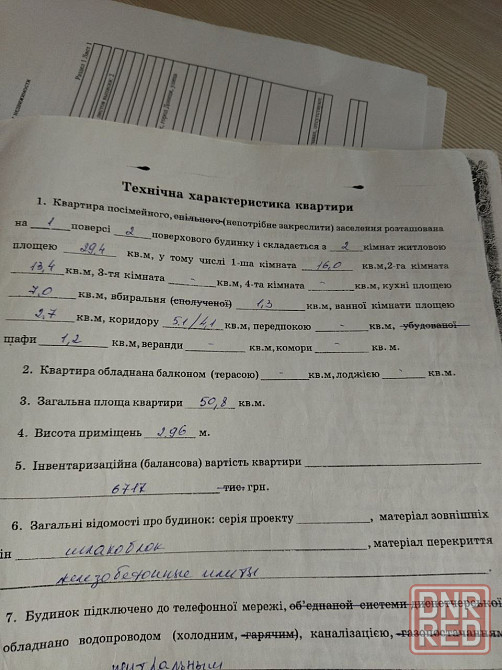 Раздел I Лист 1
город Донецк, улица
Технічна характеристика квартири
1. Квартира посімейного, спільного (непотрібне закреслити) заселення розташована
на 1 поверсі 2 поверхового будинку і складається з 2 кімнат житловою
площею 29,4 кв.м, у тому числі 1-ша кімната 16,0 кв.м, 2-га кімната
13,4 кв.м, 3-тя кімната - кв.м, 4-та кімната - кв.м, кухні площею
7,0 кв.м, вбиральня (сполученої) 1,3 кв.м, ванної кімнати площею
2,7 кв.м, коридору 5,1/4,1 кв.м, передпокою - кв.м, убудованої
шафи 1,2 кв.м, веранди - кв.м, комори - кв. м.
2. Квартира обладнана балконом (терасою) - кв.м, лоджією - кв.м.
3. Загальна площа квартири 50,8 кв.м.
4. Висота приміщень 2,96 м.
5. Інвентаризаційна (балансова) вартість квартири
6717 тис. грн.
6. Загальні відомості про будинок: серія проекту , матеріал зовнішніх
ін шлакоблок , матеріал перекриття
железобетонные плиты
7. Будинок підключено до телефонної мережі, об'єднаної системи диспетчерської
обладнано водопроводом (холодним, гарячим), каналізацією, газопостачанням
центральным
DNR
RED